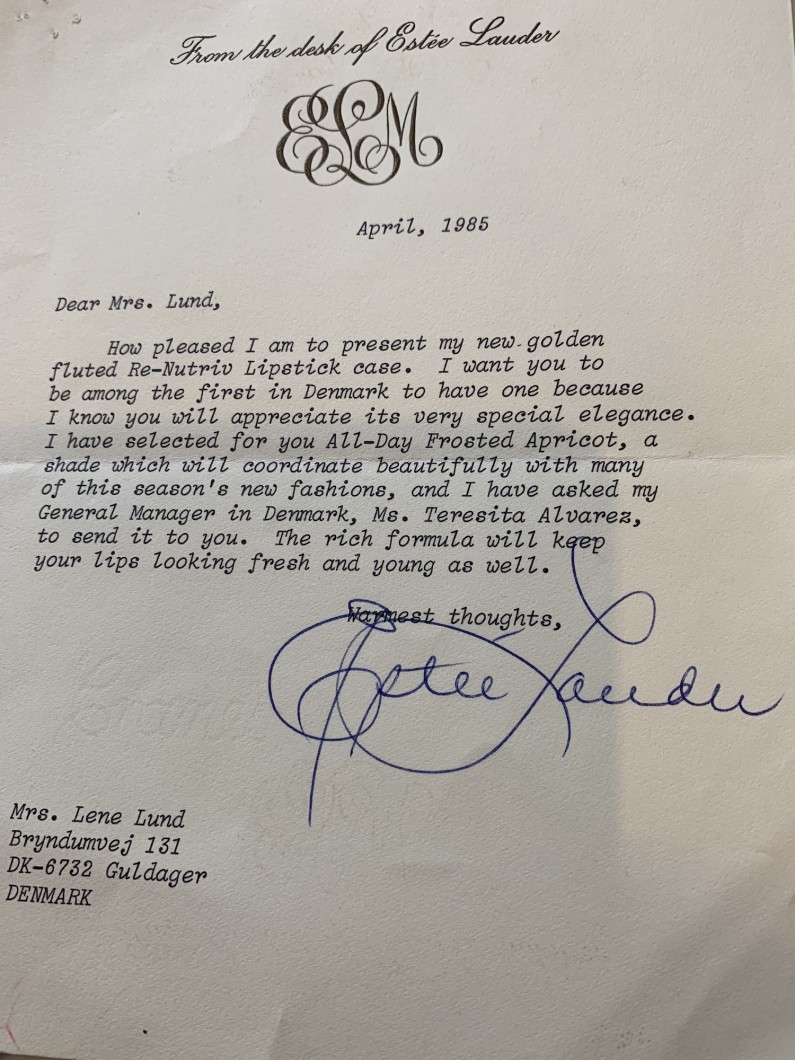 From the desk of Estée Lauder
ELM
April, 1985
Dear Mrs. Lund,
How pleased I am to present my new golden
fluted Re-Nutriv Lipstick case. I want you to
be among the first in Denmark to have one because
I know you will appreciate its very special elegance.
I have selected for you All-Day Frosted Apricot, a
shade which will coordinate beautifully with many
of this season's new fashions, and I have asked my
General Manager in Denmark, Ms. Teresita Alvarez,
to send it to you. The rich formula will keep
your lips looking fresh and young as well.
Warmest thoughts,
Estee Lauder
Mrs. Lene Lund
Bryndumvej 131
DK-6732 Guldager
DENMARK